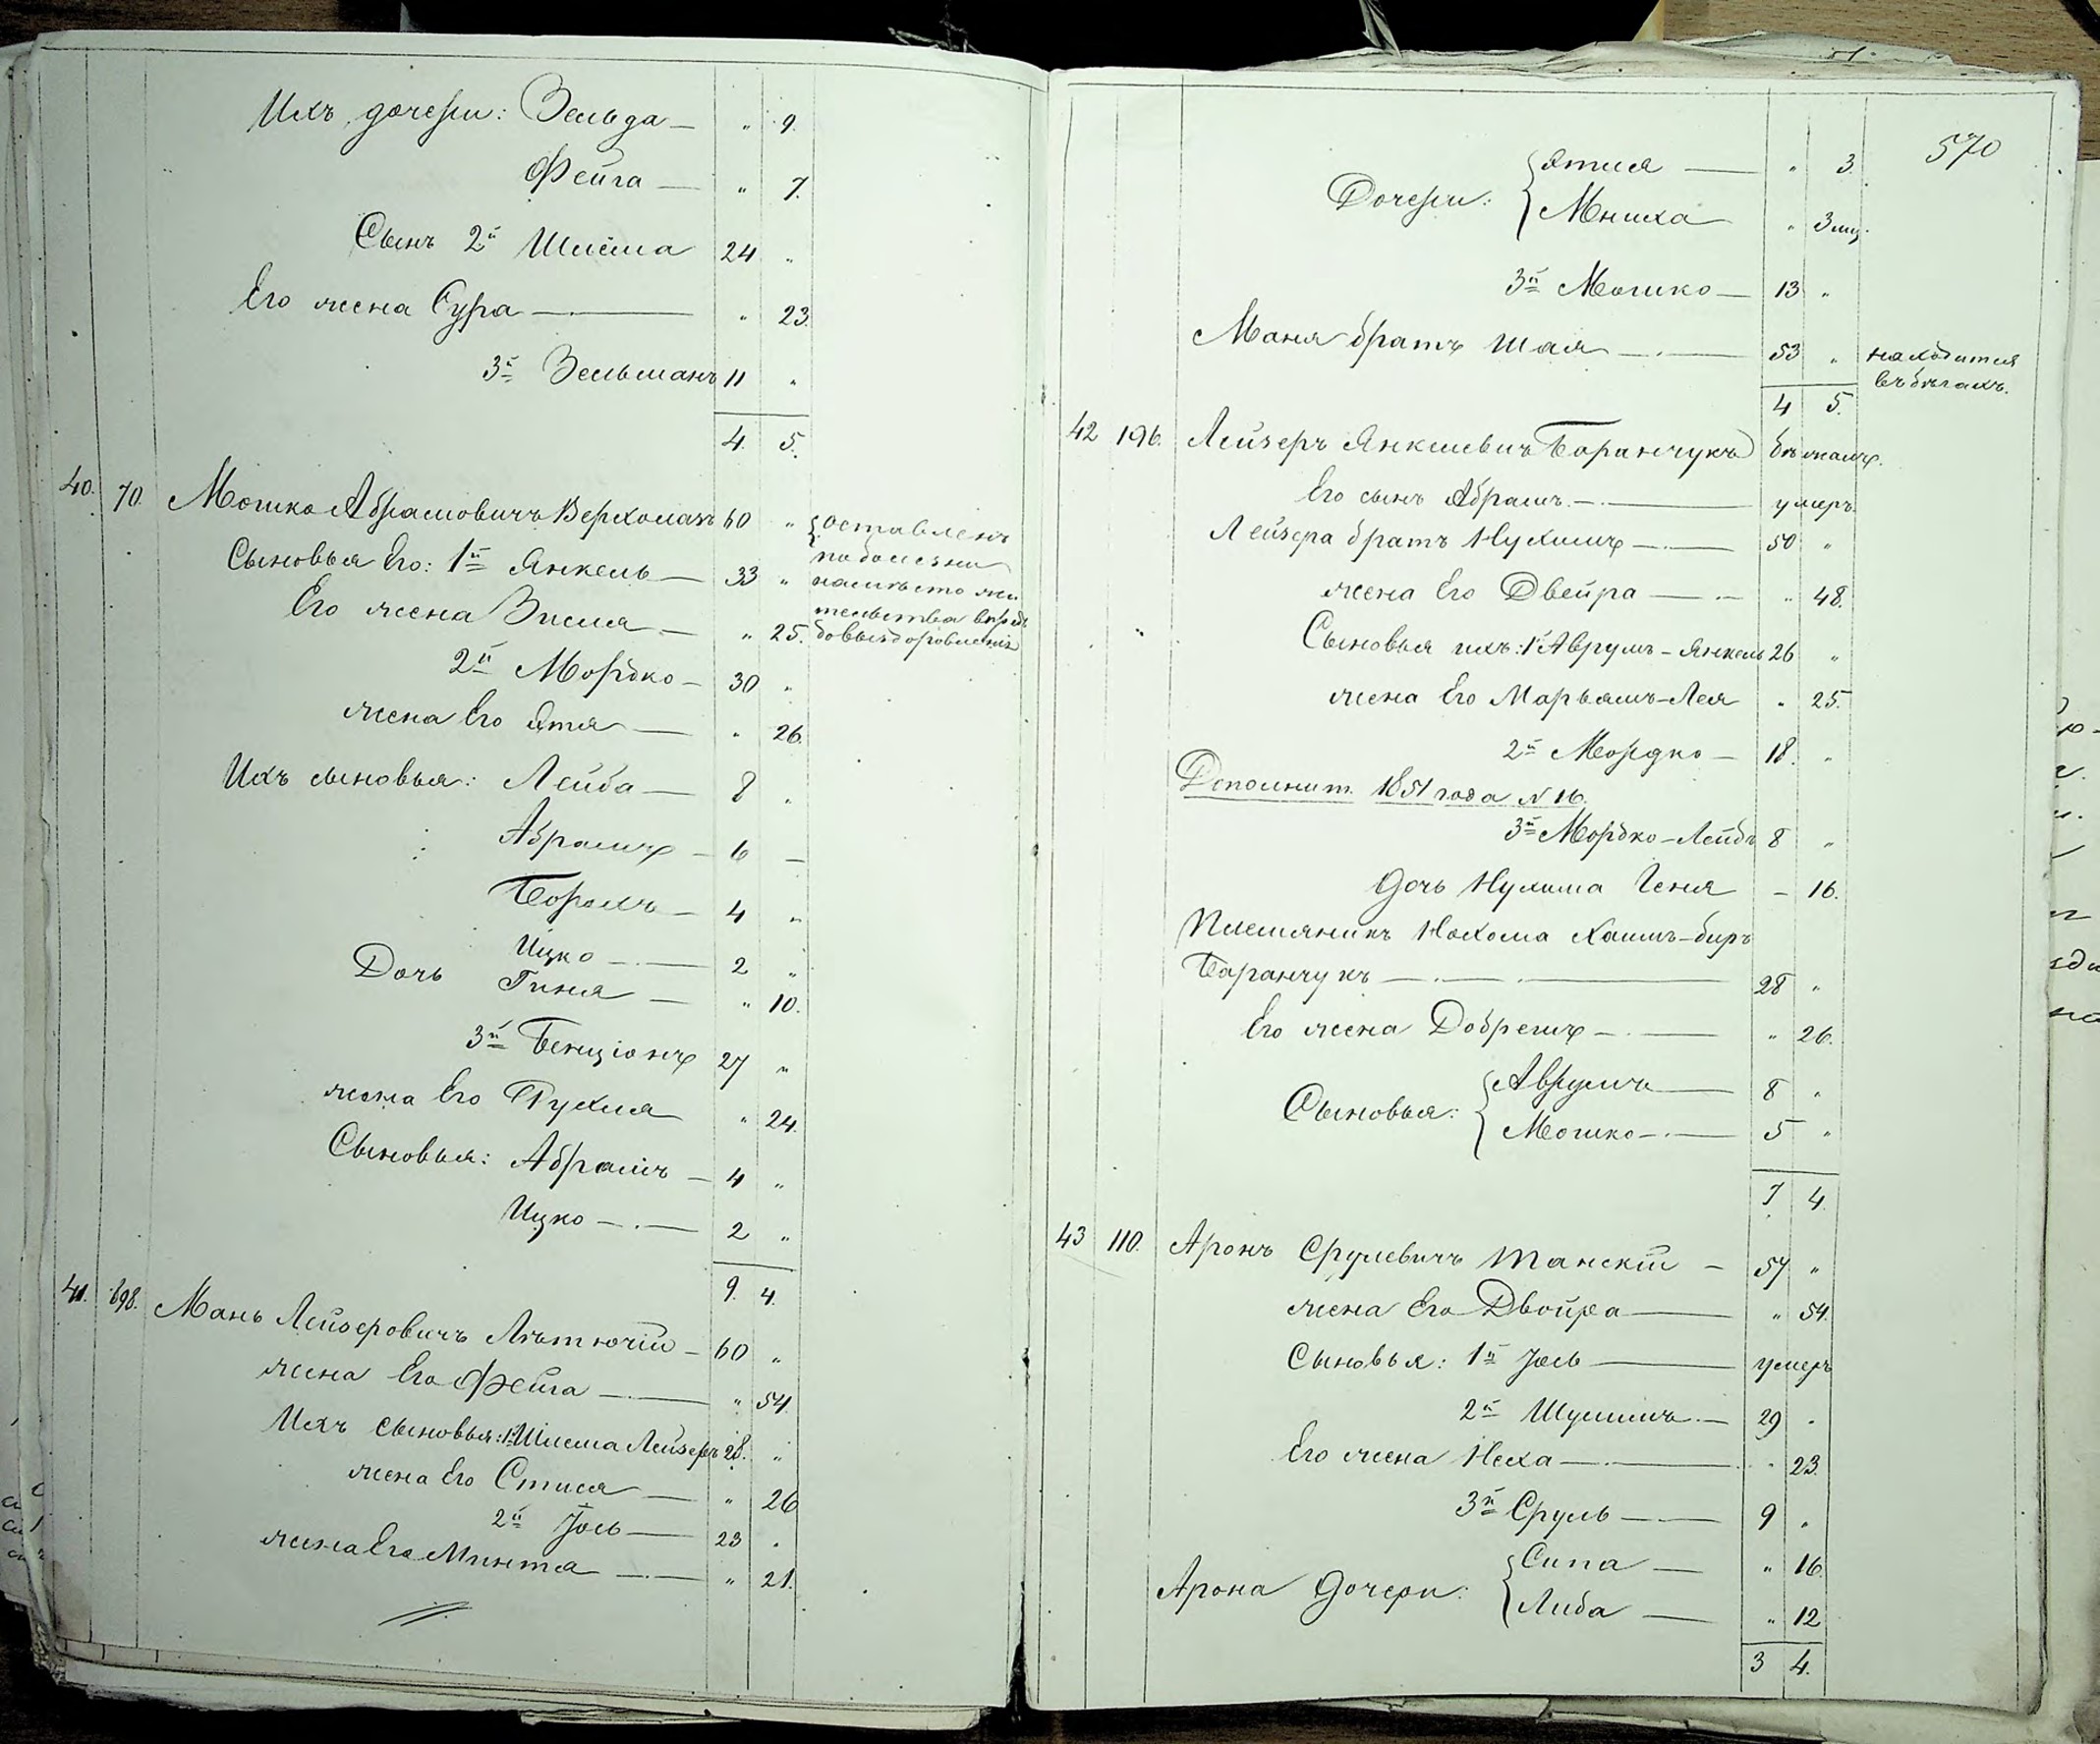 Ихъ дочери: Зельда — " 9.
Фейга — " 7.
Сынъ 2й Шлёма 24 "
Его жена Сура — " 23.
3й Зельманъ 11 "
4. 5.
40. 70. Мошко Абрамовичъ Верхолазъ 60 " оставленъ
по болезни
Сыновья Его: 1й Янкель — 33 " на место жи
тельства впредь
Его жена Зисля — " 25. до выздоровленія
2й Мордко — 30 "
жена Его Этя — " 26.
Ихъ сыновья: Лейба — 8 "
Абрамъ — 6 —
Борохъ — 4 "
Ицко — 2 "
Дочь Гиня — " 10.
3й Бенціонъ 27 "
жена Его Рухля " 24.
Сыновья: Абрамъ — 4 "
Ицко — 2 "
9. 4.
41. 698. Мань Лейзеровичъ Лѣтючій — 60 "
жена Его Фейга — " 54.
Ихъ сыновья: 1й Шлема Лейзеръ 28. "
жена Его Стися — " 26
2й Іось — 23 "
жена Его Минта — " 21.
570
Дочери: Этля — " 3.
Мниха " 3 мц.
3й Мошко — 13 "
Маня братъ Шая — 53 " находится
въ бѣгахъ.
4 5.
42 196. Лейзеръ Янкелевичъ Баранчукъ бѣжалъ.
Его сынъ Абрамъ — умеръ
Лейзера братъ Нухимъ — 50 "
жена Его Двейра — " 48.
Сыновья ихъ: 1й Аврумъ-Янкель 26 "
жена Его Марьямъ-Лея " 25.
2й Мордко — 18. "
Дополнит. 1851 года N 16.
3й Мордко-Лейбъ 8 "
Дочь Нухима Геня — 16.
Племяникъ Нохома Хаимъ-биръ
Баранчукъ — 28 "
Его жена Добрешъ — " 26.
Сыновья: Аврумъ — 8 "
Мошко — 5 "
7 4.
43 110. Аронъ Срулевичъ Танскій — 57 "
жена Его Двойра — " 54.
Сыновья: 1й Іось — умеръ
2й Шулимъ — 29 "
Его жена Неха — " 23.
3й Сруль — 9 "
Арона дочери: Сипа — " 16.
Либа — " 12
3 4.